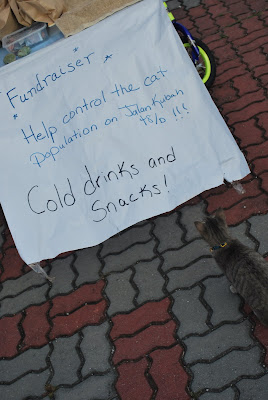 * Fundraiser *
* Help control the cat *
population on Jalan Kubah
U8/80 !!!
Cold drinks and
Snacks!